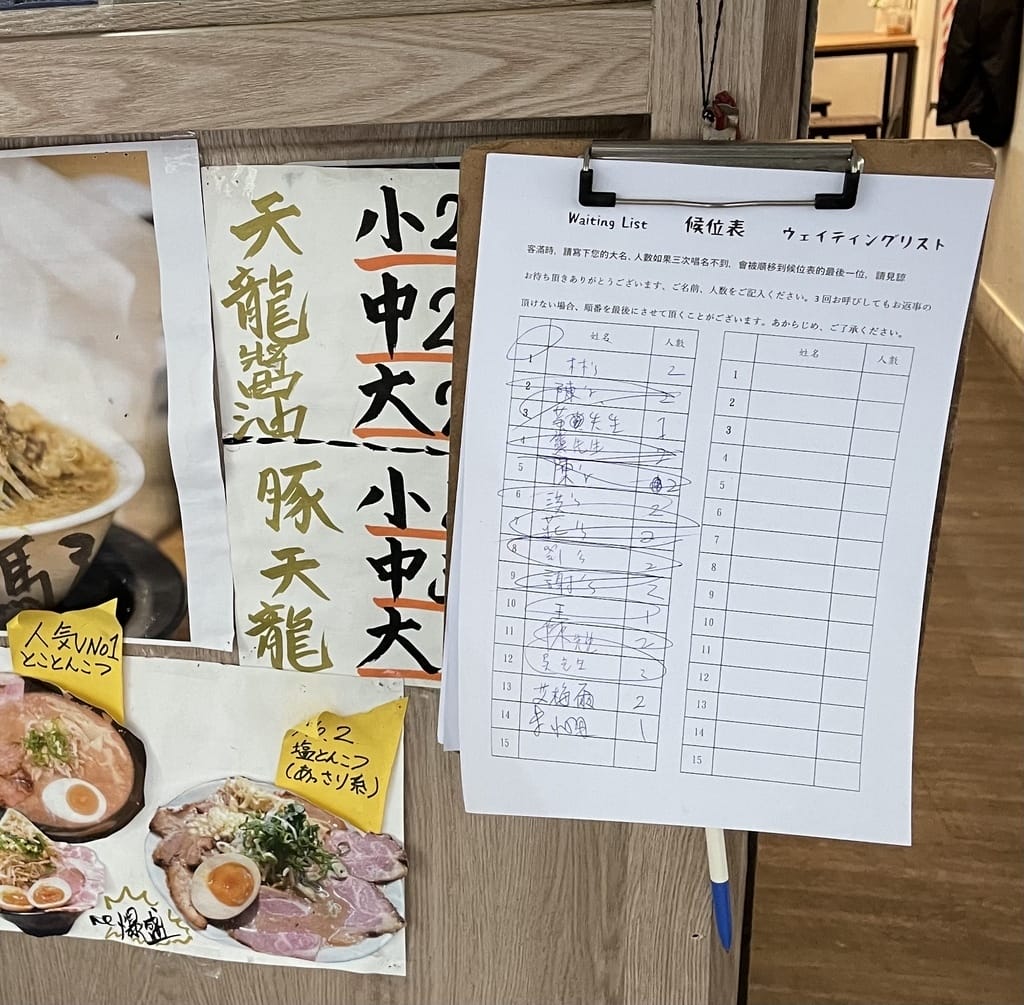 天龍醬油
小2
中2
大2
豚天龍
小
中
大
人気No1
とことんこつ
No.2
塩とんこつ
(あっさり系)
爆盛
Waiting List 候位表 ウェイティングリスト
客滿時，請寫下您的大名、人數如果三次唱名不到，會被順移到候位表的最後一位，請見諒
お待ち頂きありがとうございます、ご名前、人数をご記入ください。3回お呼びしてもお返事の
頂けない場合、順番を最後にさせて頂くことがございます。あからじめ、ご了承ください。
姓名 人數
1 林's 2
2 陳's 2
3 先生 1
4 黃先生
5 陳's 2
6 2
7 莊's 2
8 劉's 2
9 謝's 2
10 王 1
11 2
12 吳先生
13 艾梅爾 2
14 1
15
姓名 人數
1
2
3
4
5
6
7
8
9
10
11
12
13
14
15